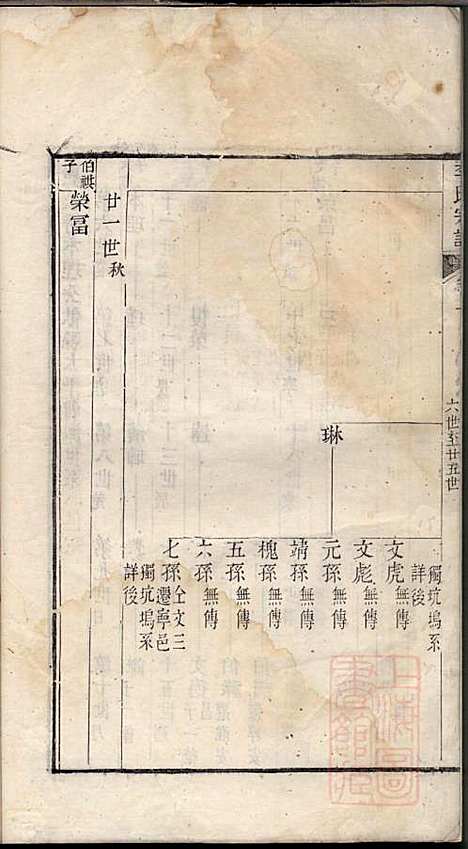 李氏宗譜
六世至廿五世
琳
獨坑塢系
詳後
文虎無傳
文彪無傳
元孫無傳
靖孫無傳
槐孫無傳
五孫無傳
六孫無傳
七孫仝文三
遷寧邑
獨坑塢系
詳後
廿一世秋
伯祺
子
榮冨
上海圖
書館藏